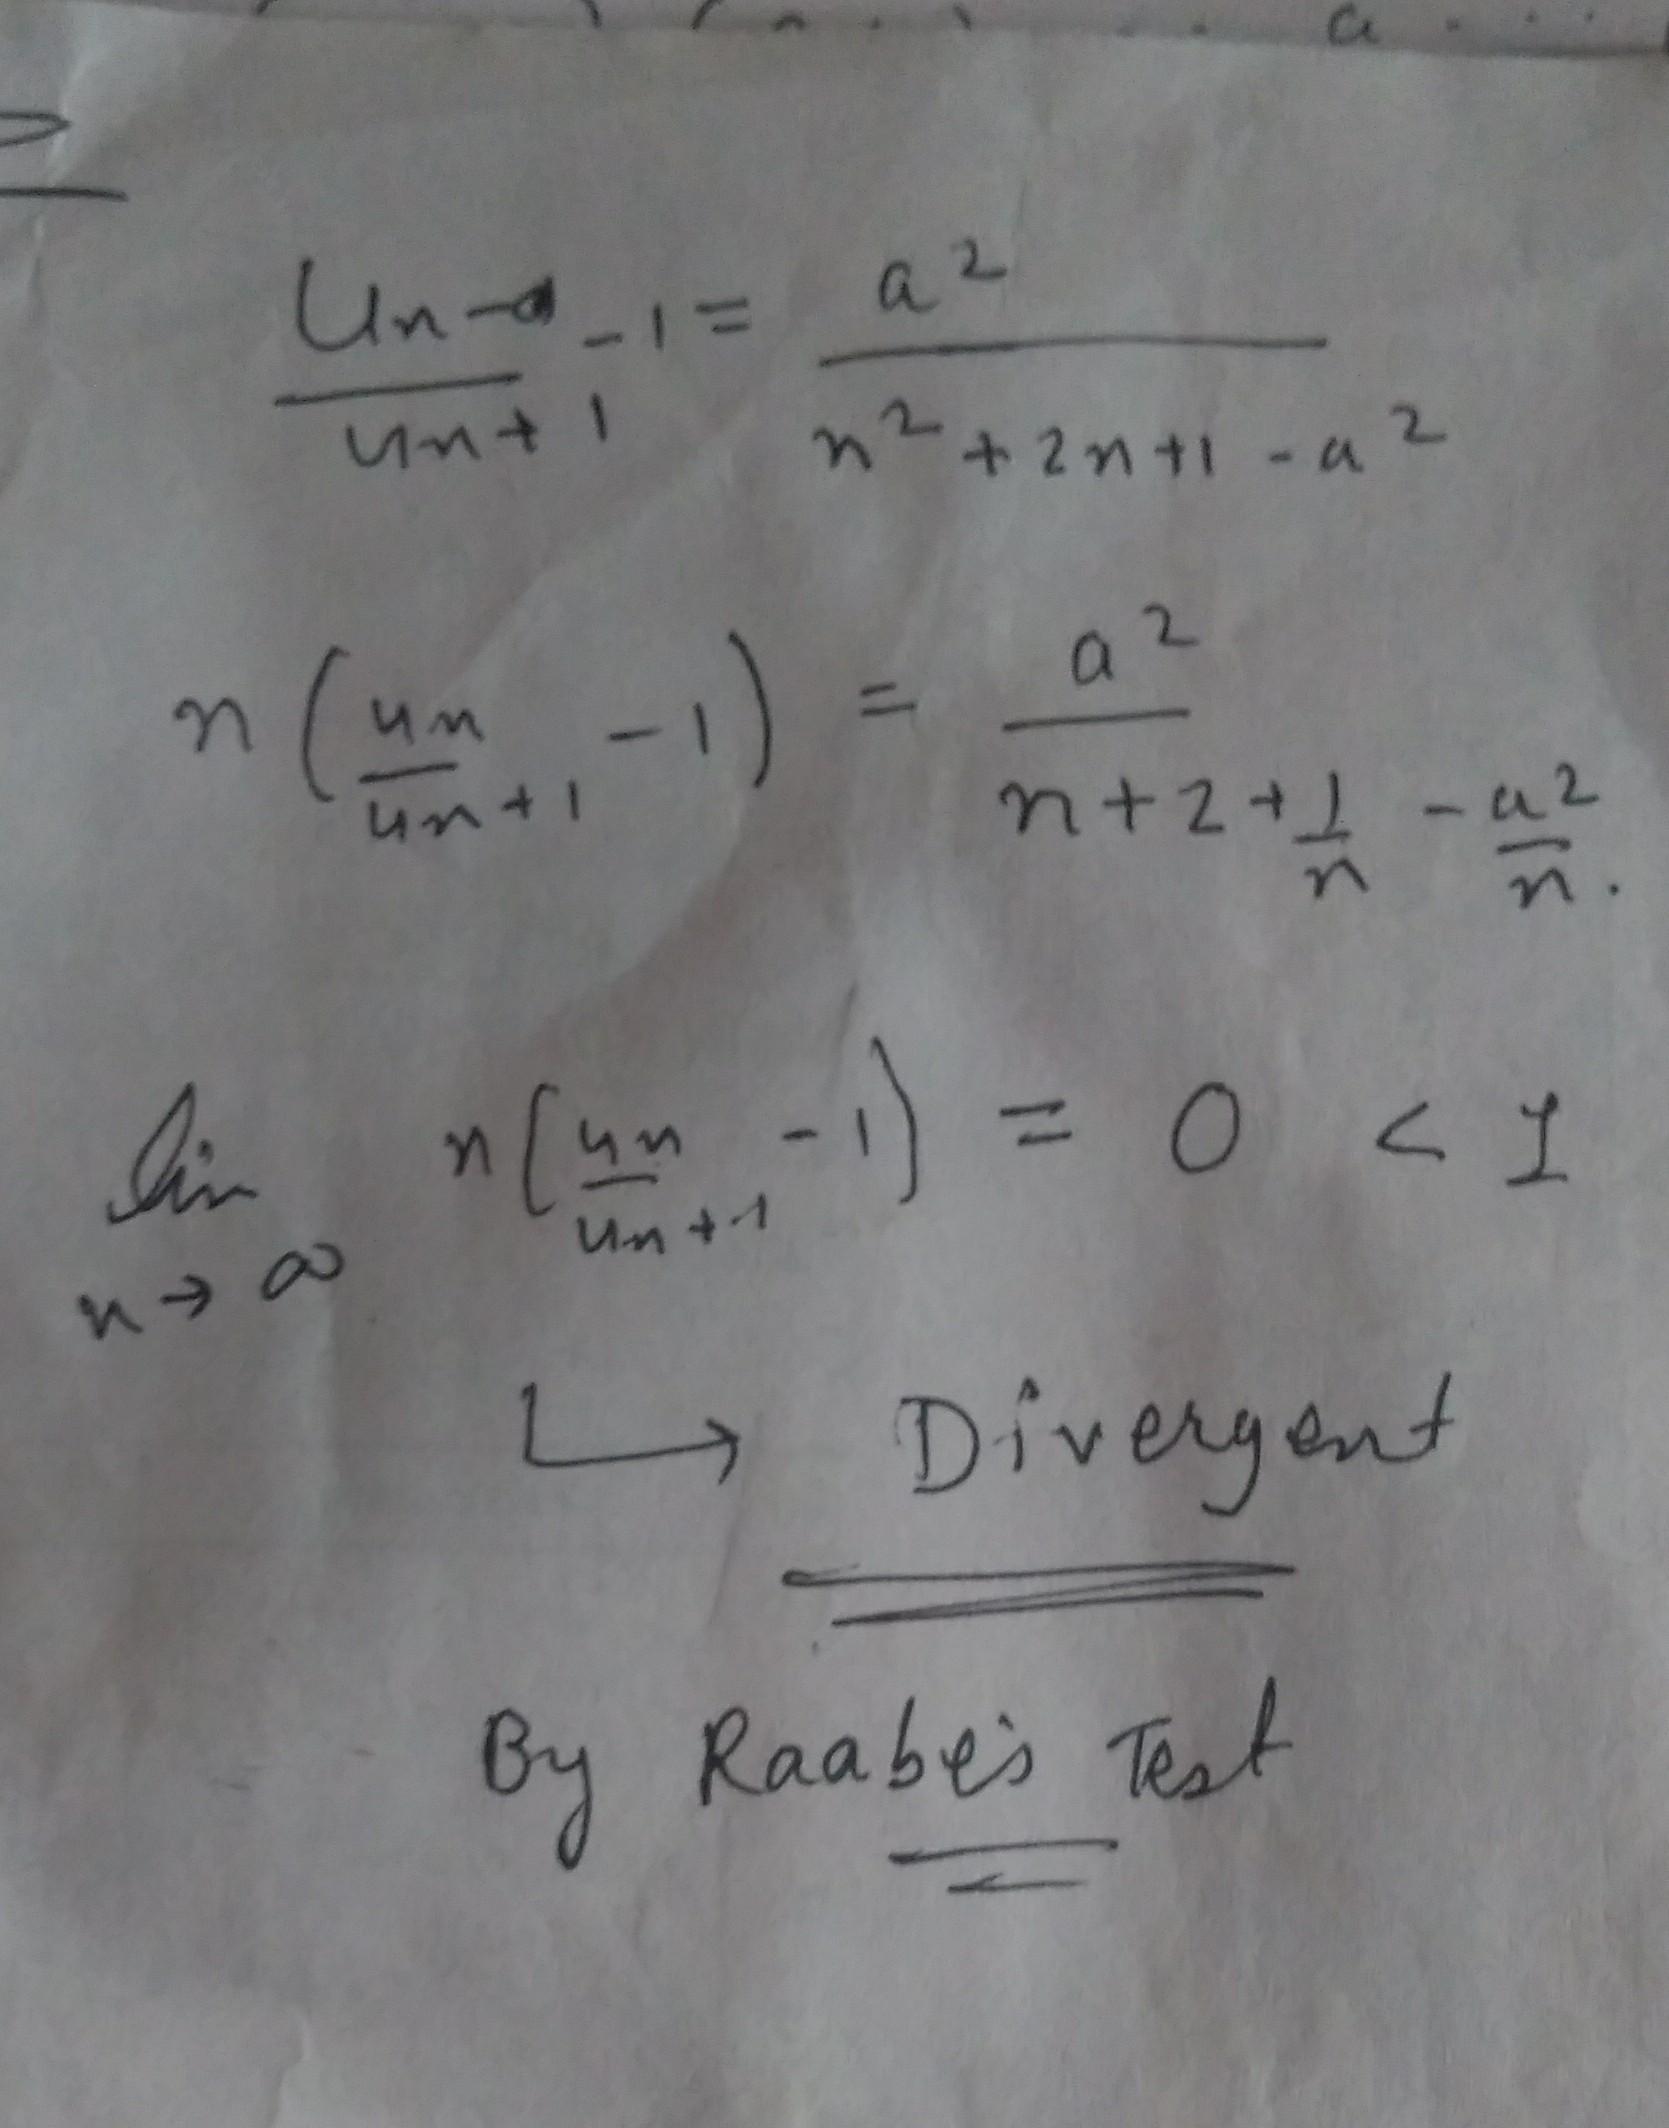 a
Un/Un+1 - 1 = a²/(n² + 2n + 1 - a²)
n(un/un+1 - 1) = a²/(n + 2 + 1/n - a²/n).
lim n→∞ n(un/un+1 - 1) = 0 < 1
↳ Divergent
By Raabe's Test